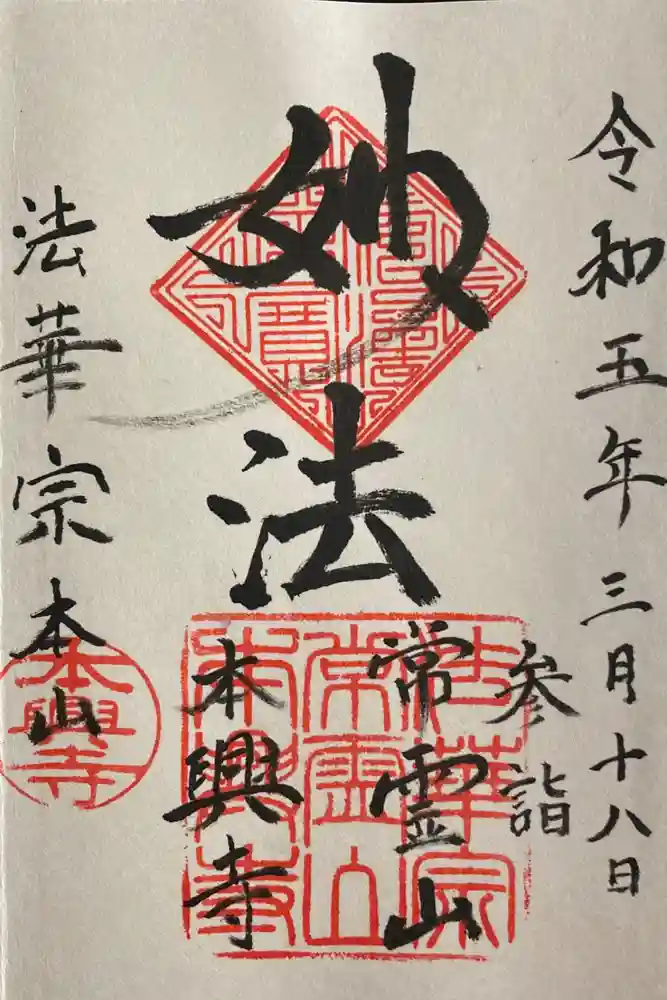 令和五年三月十八日
参詣
妙法
常霊山
本興寺
法華宗本山
法華宗
常霊山
本興寺
本興寺